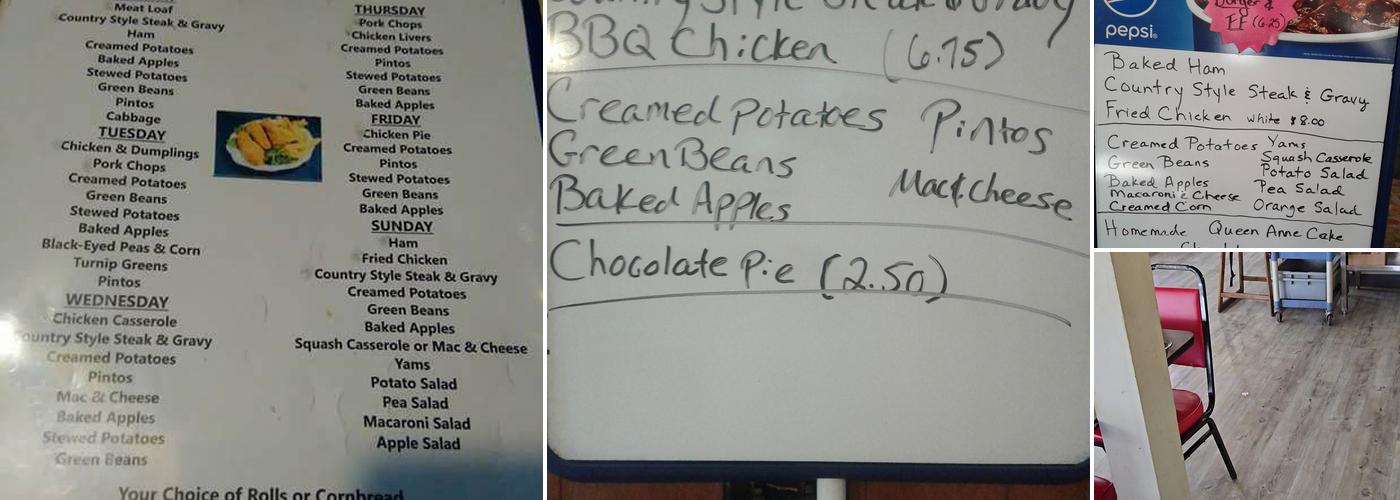 Meat Loaf
Country Style Steak & Gravy
Ham
Creamed Potatoes
Baked Apples
Stewed Potatoes
Green Beans
Pintos
Cabbage
TUESDAY
Chicken & Dumplings
Pork Chops
Creamed Potatoes
Green Beans
Stewed Potatoes
Baked Apples
Black-Eyed Peas & Corn
Turnip Greens
Pintos
WEDNESDAY
Chicken Casserole
Country Style Steak & Gravy
Creamed Potatoes
Pintos
Mac & Cheese
Baked Apples
Stewed Potatoes
Green Beans
THURSDAY
Pork Chops
Chicken Livers
Creamed Potatoes
Pintos
Stewed Potatoes
Green Beans
Baked Apples
FRIDAY
Chicken Pie
Creamed Potatoes
Pintos
Stewed Potatoes
Green Beans
Baked Apples
SUNDAY
Ham
Fried Chicken
Country Style Steak & Gravy
Creamed Potatoes
Green Beans
Baked Apples
Squash Casserole or Mac & Cheese
Yams
Potato Salad
Pea Salad
Macaroni Salad
Apple Salad
Your Choice of Rolls or Cornbread
Country Style Steak & Gravy
BBQ Chicken (6.75)
Creamed Potatoes Pintos
Green Beans
Mac & Cheese
Baked Apples
Chocolate Pie (2.50)
Burger &
FF (6.25)
pepsi
Baked Ham
Country Style Steak & Gravy
Fried Chicken white $8.00
Creamed Potatoes Yams
Green Beans Squash Casserole
Potato Salad
Baked Apples Pea Salad
Macaroni & Cheese
Creamed Corn Orange Salad
Homemade Queen Anne Cake